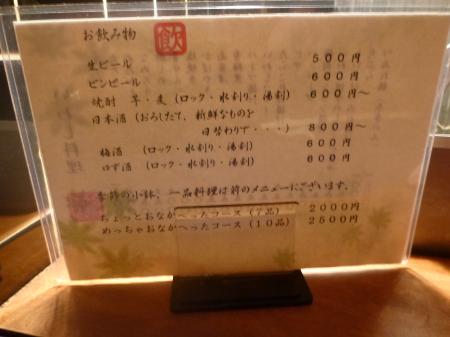 お飲み物 飲
生ビール 500円
ビンビール 600円
焼酎 芋・麦(ロック・水割り・湯割) 600円～
日本酒(おろしたて、新鮮なものを
日替わりで・・・) 800円～
梅酒 (ロック・水割り・湯割) 600円
ゆず酒 (ロック・水割り・湯割) 600円
季節の小鉢、一品料理は前のメニューにございます。
ちょっとおなかへったコース(7品) 2000円
めっちゃおなかへったコース(10品) 2500円
料理